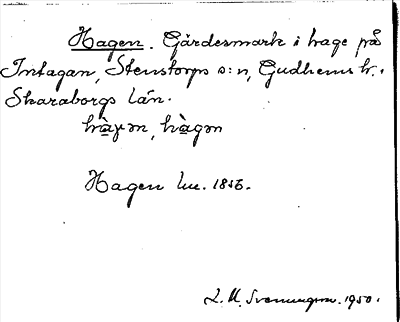 Hagen. Gärdesmark i hage på
Intagan, Stenstorps s:n, Gudhems h.,
Skaraborgs län.
hàɣən, hàgən
Hagen lm. 1856.
L. M. Svenungson. 1950.